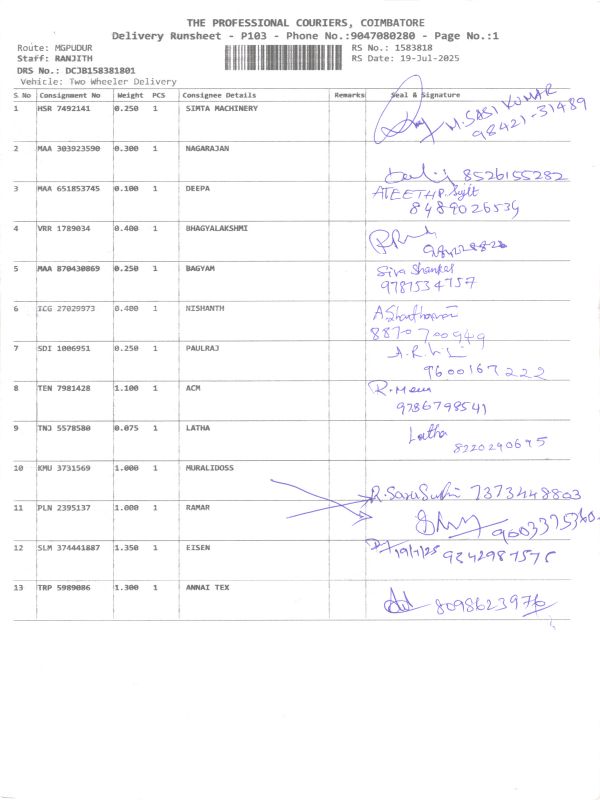 THE PROFESSIONAL COURIERS, COIMBATORE
Delivery Runsheet - P103 - Phone No.:9047080280 - Page No.:1
Route: MGPUDUR RS No.: 1583818
Staff: RANJITH RS Date: 19-Jul-2025
DRS No.: DCJB158381801
Vehicle: Two Wheeler Delivery
S No Consignment No Weight PCS Consignee Details Remarks Seal & Signature
1 HSR 7492141 0.250 1 SIMTA MACHINERY M. SASI KUMAR
98421-31489
2 MAA 303923590 0.300 1 NAGARAJAN
8526155282
3 MAA 651853745 0.100 1 DEEPA
8489026534
4 VRR 1789034 0.400 1 BHAGYALAKSHMI
5 MAA 870430869 0.250 1 BAGYAM Siva Shankar
9787534757
6 ICG 27029973 0.400 1 NISHANTH
8870700949
7 SDI 1006951 0.250 1 PAULRAJ
9600167222
8 TEN 7981428 1.100 1 ACM
9786798541
9 TNJ 5578580 0.075 1 LATHA Latha
8220290675
10 KMU 3731569 1.000 1 MURALIDOSS
7373448803
11 PLN 2395137 1.000 1 RAMAR
9003375360
12 SLM 374441887 1.350 1 EISEN 19/7/25 9842987575
13 TRP 5989086 1.300 1 ANNAI TEX
8098623976